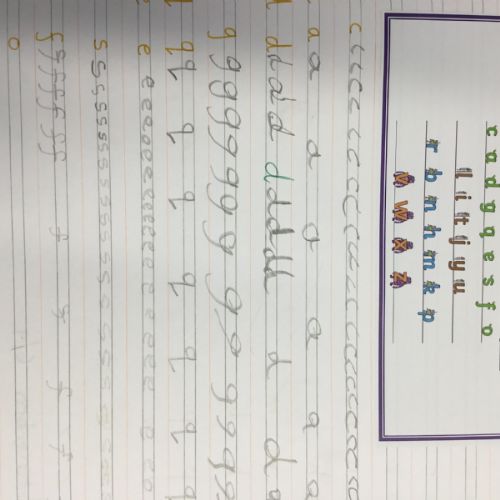 c a d g q e s f o
l i t j y u
r b n h m k p
v w x z
c c c c c c c c c c c c c c c c c c c c c c
a a a a a a a
d d d d d d d d d d d
g g g g g g g g g g g g g
q q q q q q q q
e e e e e e e e e e e e e e e e e e
s s s s s s s s s s s s s s s s s s s s
f f f f f f f f f f f
o